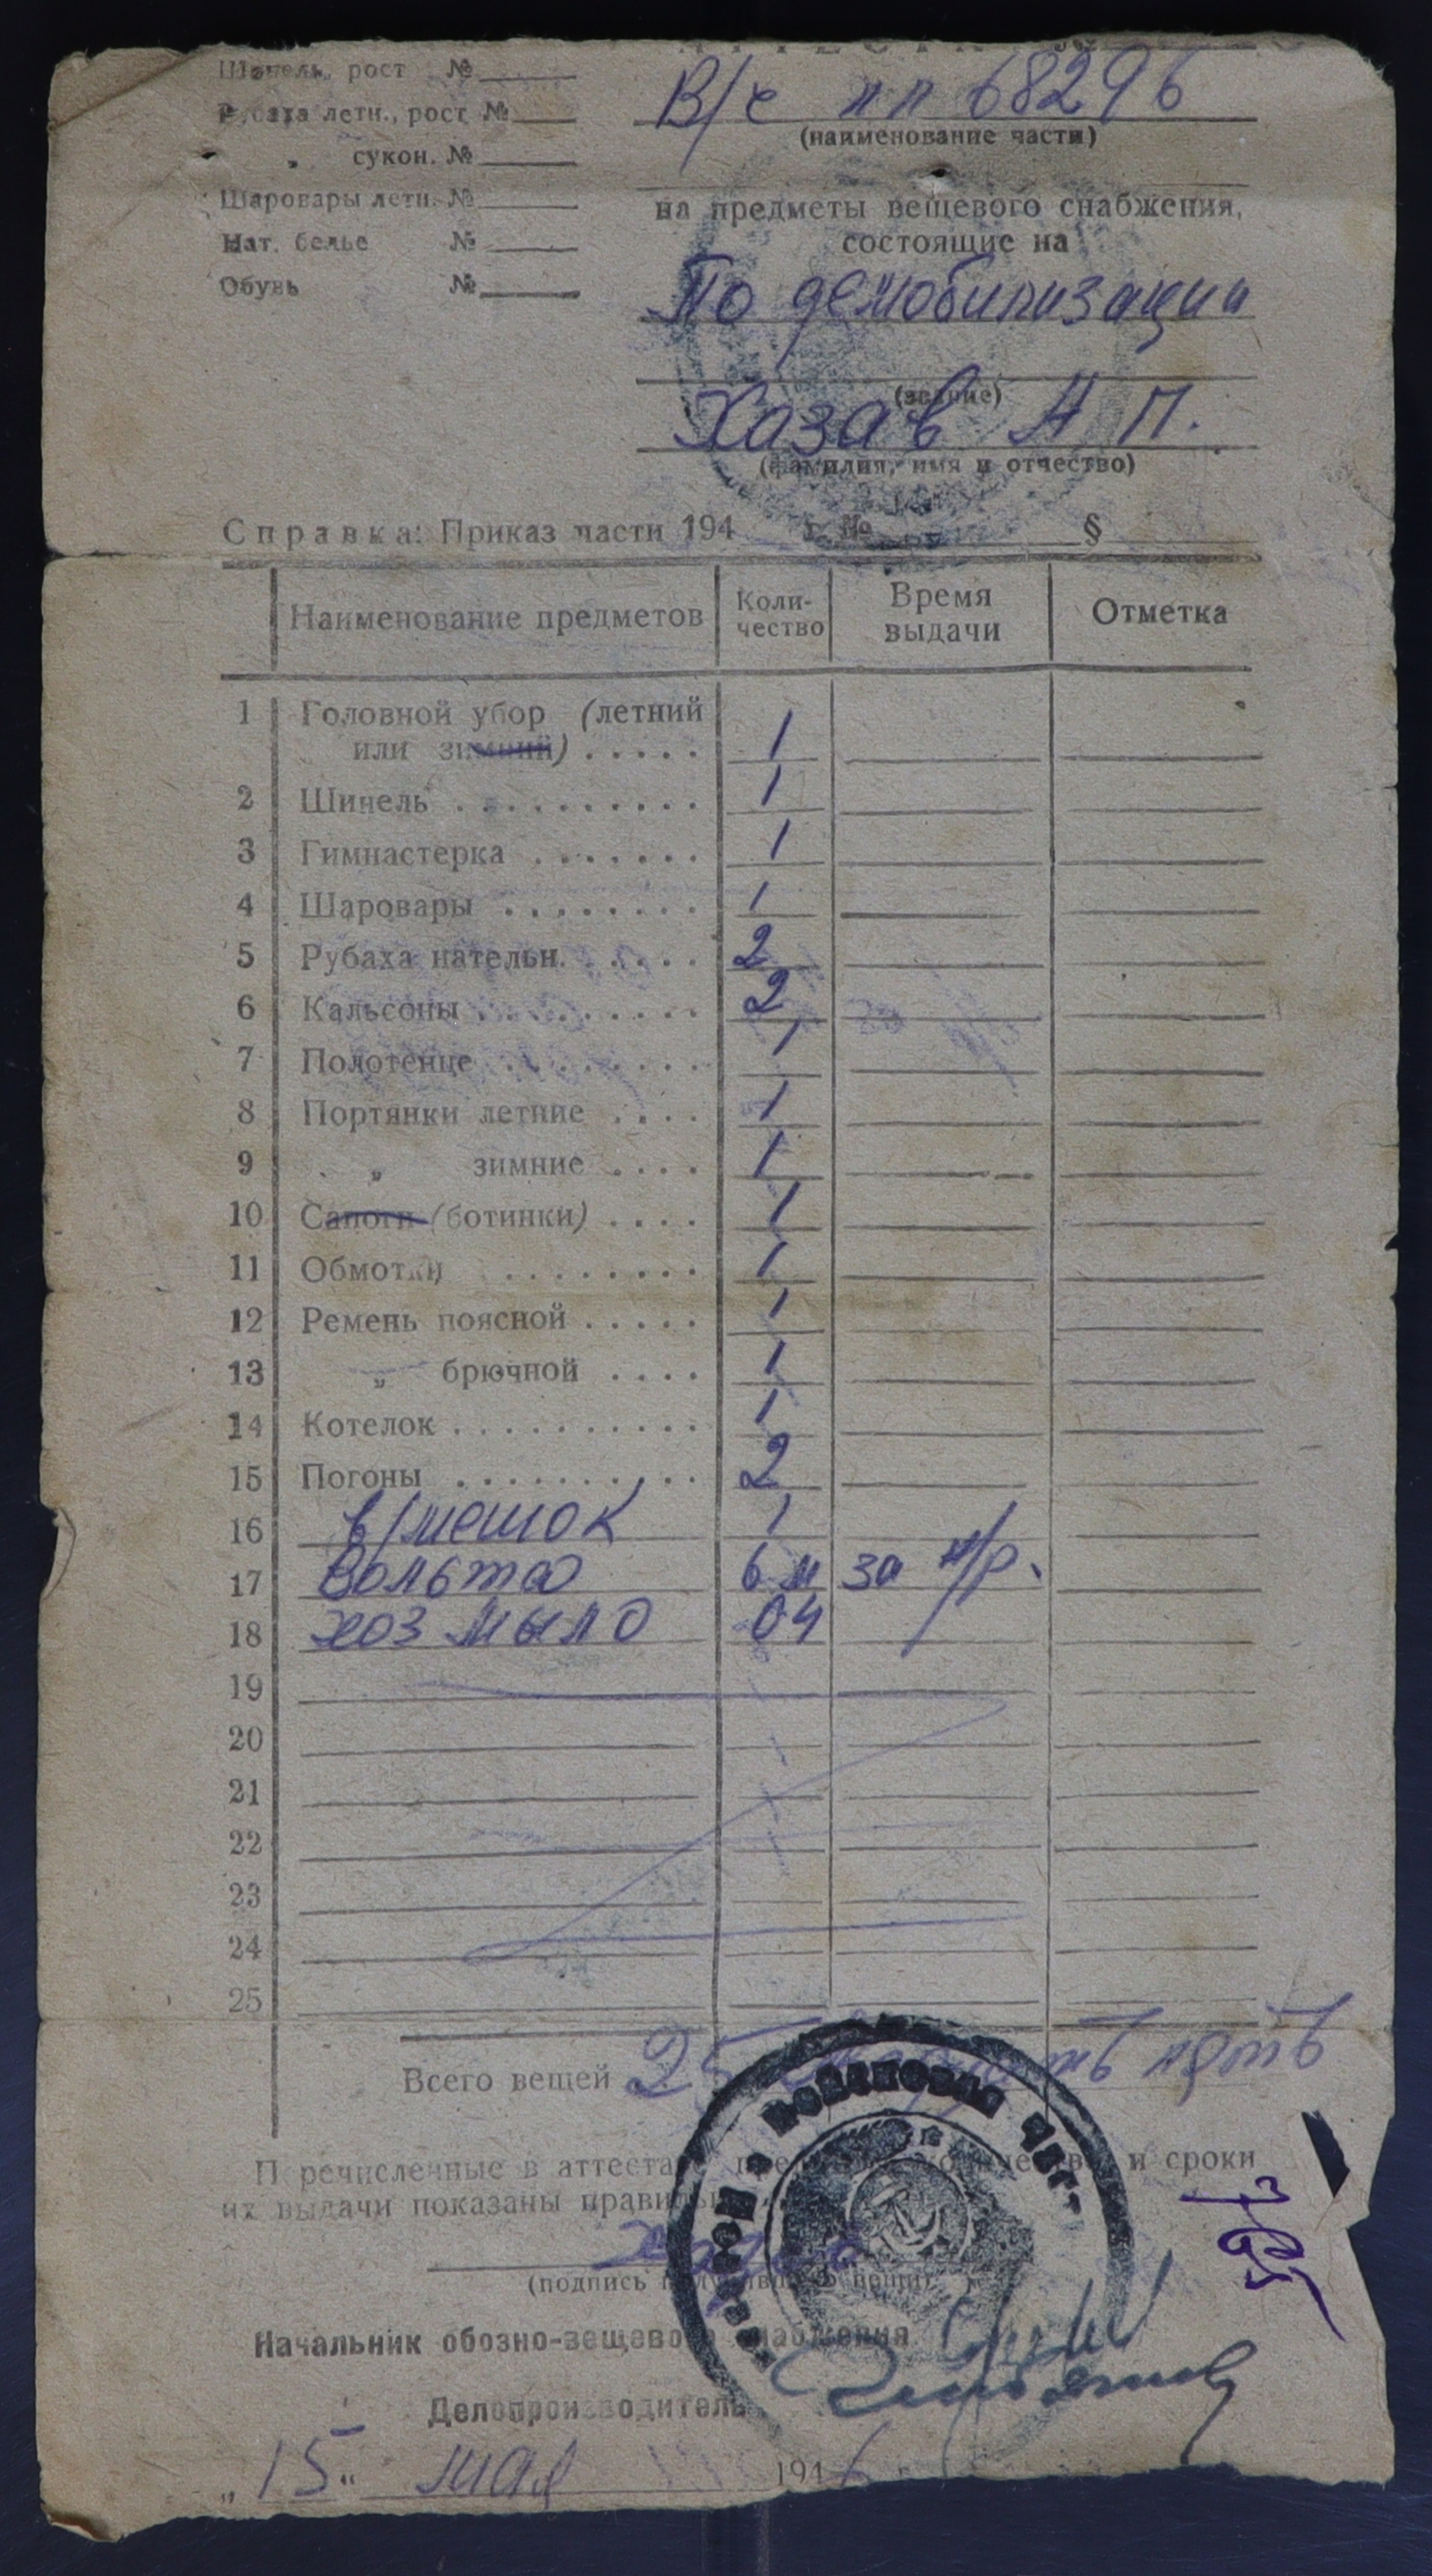 АТТЕСТАТ №
Шинель, рост №
Рубаха летн., рост №
„ сукон. №
Шаровары летн. №
Нат. белье №
Обувь №
В/ч пп 68296
(наименование части)
на предметы вещевого снабжения,
состоящие на
По демобилизации
(звание)
Хазав А П.
(фамилия, имя и отчество)
Справка: Приказ части 194 г. № §
Наименование предметов Коли-чество Время выдачи Отметка
1 Головной убор (летний
или зимний) . . . . . 1
2 Шинель . . . . . . . . . . 1
3 Гимнастерка . . . . . . . 1
4 Шаровары . . . . . . . . 1
5 Рубаха нательн. . . . . . 2
6 Кальсоны . . . . . . . . . 2
7 Полотенце . . . . . . . . 1
8 Портянки летние . . . . 1
9 „ зимние . . . . 1
10 Сапоги (ботинки) . . . . 1
11 Обмотки . . . . . . . . 1
12 Ремень поясной . . . . . 1
13 „ брючной . . . . 1
14 Котелок . . . . . . . . . . 1
15 Погоны . . . . . . . . . . 2
16 в/мешок 1
17 Вольта 6 м за н/р.
18 хоз мыло 04
19
20
21
22
23
24
25
Всего вещей 25 пять
Перечисленные в аттестате предметы, количество и сроки
их выдачи показаны правильно
Хазав
(подпись получившего вещи)
Начальник обозно-вещевого снабжения
Делопроизводитель
„15“ мая 1946 г.
Полевая Войсковая часть